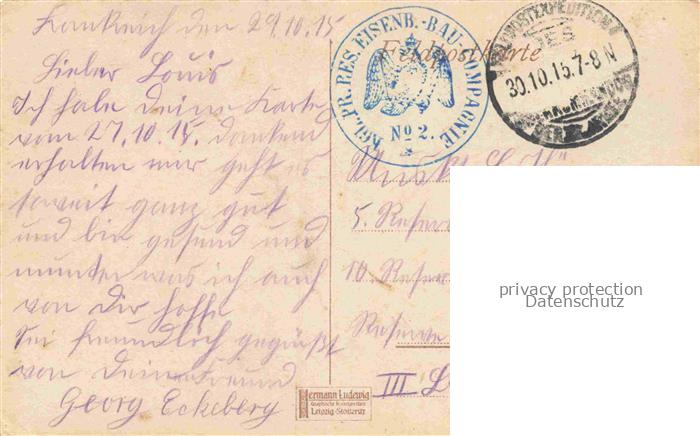 Frankreich den 29.10.15
Lieber Louis
Ich habe deine Karte
vom 27.10.15. dankend
erhalten mir geht es
soweit ganz gut
und bin gesund und
munter was ich auch
von Dir hoffe
Sei freundlich gegrüßt
von Deinem Freund
Georg Eckeberg
Feldpostkarte
KGL. PR. RES. EISENB.-BAU-COMPAGNIE
No 2.
30.10.15.7-8 N
Musk.
5. Reserv
10. Reserv
Reserve
III
Hermann Ludwig
Leipzig-Stötteritz
privacy protection
Datenschutz